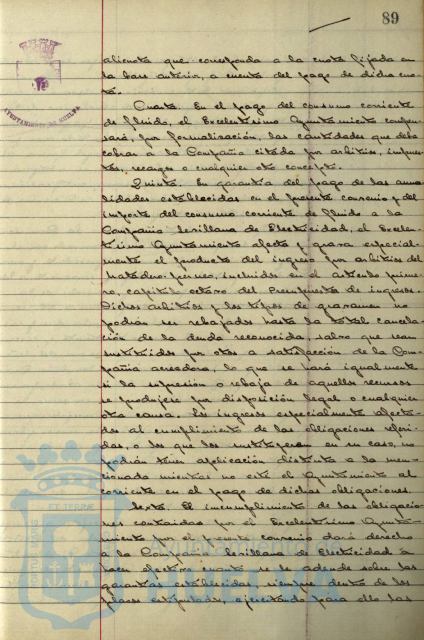 89
AYUNTAMIENTO DE HUELVA
alicuota que corresponda a la cuota fijada en
la base anterior, a cuenta del pago de dicha cuo-
ta.
Cuarta. En el pago del consumo corriente
de fluido, el Excelentísimo Ayuntamiento compen-
sará, por formalización, las cantidades que deba
cobrar a la Compañía citada por arbitrios, impues-
tos, recargos o cualquier otro concepto.
Quinta. En garantía del pago de las anua-
lidades establecidas en el presente convenio y del
importe del consumo corriente de fluido a la
Compañía Sevillana de Electricidad, el Excelen-
tísimo Ayuntamiento afecta y grava especial-
mente el producto del ingreso por arbitrios del
Matadero. personas, incluidos en el artículo prime-
ro, capítulo octavo del Presupuesto de ingresos.
Dichos arbitrios y los tipos de gravamen no
podrán ser rebajados hasta la total cancela-
ción de la deuda reconocida, salvo que sean
sustituidos por otros a satisfacción de la Com-
pañía acreedora, lo que se hará igualmente
si la supresión o rebaja de aquellos recursos
se produjese por disposición legal o cualquier
otra causa. Los ingresos especialmente afecta-
dos al cumplimiento de las obligaciones referi-
das, o los que los sustituyeran en su caso, no
podrán tener aplicación distinta a la men-
cionada mientras no esté el Ayuntamiento al
corriente en el pago de dichas obligaciones.
Sexta. El incumplimiento de las obligacio-
nes contraidas por el Excelentísimo Ayunta-
miento por el presente convenio dará derecho
a la Compañía Sevillana de Electricidad a
hacer efectivo cuanto se le adeude sobre las
garantías establecidas, siempre dentro de los
plazos estipulados, ejercitando para ello las